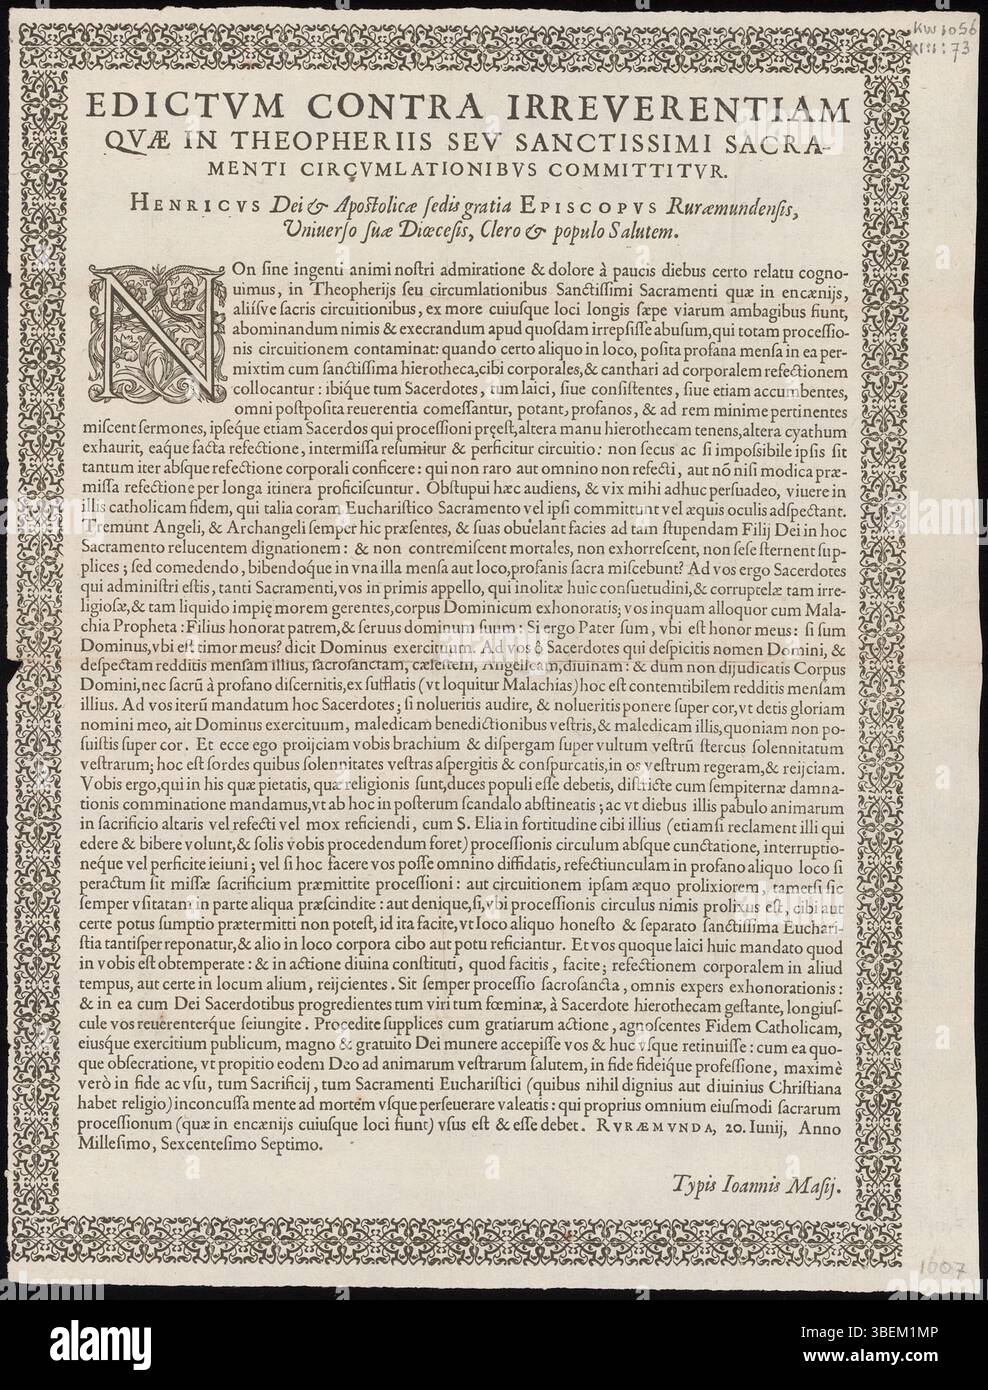 KW 1056
EDICTVM CONTRA IRREVERENTIAM
QVÆ IN THEOPHERIIS SEV SANCTISSIMI SACRA-
MENTI CIRCVMLATIONIBVS COMMITTITVR.
HENRICVS Dei & Apostolicæ ſedis gratia EPISCOPVS Ruræmundenſis,
Vniuerſo ſuæ Diœceſis, Clero & populo Salutem.
NOn ſine ingenti animi noſtri admiratione & dolore à paucis diebus certo relatu cogno-
uimus, in Theopherijs ſeu circumlationibus Sanctiſſimi Sacramenti quæ in encænijs,
aliiſve ſacris circuitionibus, ex more cuiuſque loci longis ſæpe viarum ambagibus fiunt,
abominandum nimis & execrandum apud quoſdam irrepſiſſe abuſum, qui totam proceſſio-
nis circuitionem contaminat: quando certo aliquo in loco, poſita profana menſa in ea per-
mixtim cum ſanctiſſima hierotheca, cibi corporales, & canthari ad corporalem refectionem
collocantur : ibique tum Sacerdotes, tum laici, ſiue conſiſtentes, ſiue etiam accumbentes,
omni poſtpoſita reuerentia comeſſantur, potant, profanos, & ad rem minime pertinentes
miſcent ſermones, ipſeque etiam Sacerdos qui proceſſioni pręeſt, altera manu hierothecam tenens, altera cyathum
exhaurit, eaque facta refectione, intermiſſa reſumitur & perficitur circuitio: non ſecus ac ſi impoſſibile ipſis ſit
tantum iter abſque refectione corporali conficere: qui non raro aut omnino non refecti, aut nō niſi modica præ-
miſſa refectione per longa itinera proficiſcuntur. Obſtupui hæc audiens, & vix mihi adhuc perſuadeo, viuere in
illis catholicam fidem, qui talia coram Euchariſtico Sacramento vel ipſi committunt vel æquis oculis adſpectant.
Tremunt Angeli, & Archangeli ſemper hic præſentes, & ſuas obuelant facies ad tam ſtupendam Filij Dei in hoc
Sacramento relucentem dignationem: & non contremiſcent mortales, non exhorreſcent, non ſeſe ſternent ſup-
plices; ſed comedendo, bibendoque in vna illa menſa aut loco, profanis ſacra miſcebunt? Ad vos ergo Sacerdotes
qui adminiſtri eſtis, tanti Sacramenti, vos in primis appello, qui inolitæ huic conſuetudini, & corruptelæ tam irre-
ligioſæ, & tam liquido impię morem gerentes, corpus Dominicum exhonoratis; vos inquam alloquor cum Mala-
chia Propheta: Filius honorat patrem, & ſeruus dominum ſuum: Si ergo Pater ſum, vbi eſt honor meus: ſi ſum
Dominus, vbi eſt timor meus? dicit Dominus exercituum. Ad vos ô Sacerdotes qui deſpicitis nomen Domini, &
deſpectam redditis menſam illius, ſacroſanctam, cæleſtem, Angelicam, diuinam: & dum non dijudicatis Corpus
Domini, nec ſacrū à profano diſcernitis, ex ſufflatis (vt loquitur Malachias) hoc eſt contemtibilem redditis menſam
illius. Ad vos iterū mandatum hoc Sacerdotes; ſi nolueritis audire, & nolueritis ponere ſuper cor, vt detis gloriam
nomini meo, ait Dominus exercituum, maledicam benedictionibus veſtris, & maledicam illis, quoniam non po-
ſuiſtis ſuper cor. Et ecce ego proijciam vobis brachium & diſpergam ſuper vultum veſtrū ſtercus ſolennitatum
veſtrarum; hoc eſt ſordes quibus ſolennitates veſtras aſpergitis & conſpurcatis, in os veſtrum regeram, & reijciam.
Vobis ergo, qui in his quæ pietatis, quæ religionis ſunt, duces populi eſſe debetis, diſtricte cum ſempiternæ damna-
tionis comminatione mandamus, vt ab hoc in poſterum ſcandalo abſtineatis; ac vt diebus illis pabulo animarum
in ſacrificio altaris vel refecti vel mox reficiendi, cum S. Elia in fortitudine cibi illius (etiamſi reclament illi qui
edere & bibere volunt, & ſolis vobis procedendum foret) proceſſionis circulum abſque cunctatione, interruptio-
neque vel perficite ieiuni; vel ſi hoc facere vos poſſe omnino diffidatis, refectiunculam in profano aliquo loco ſi
peractum ſit miſſæ ſacrificium præmittite proceſſioni: aut circuitionem ipſam æquo prolixiorem, tametſi ſic
ſemper vſitatam in parte aliqua præſcindite: aut denique, ſi, vbi proceſſionis circulus nimis prolixus eſt, cibi aut
certe potus ſumptio prætermitti non poteſt, id ita facite, vt loco aliquo honeſto & ſeparato ſanctiſſima Euchari-
ſtia tantiſper reponatur, & alio in loco corpora cibo aut potu reficiantur. Et vos quoque laici huic mandato quod
in vobis eſt obtemperate: & in actione diuina conſtituti, quod facitis, facite; refectionem corporalem in aliud
tempus, aut certe in locum alium, reijcientes. Sit ſemper proceſſio ſacroſancta, omnis expers exhonorationis:
& in ea cum Dei Sacerdotibus progredientes tum viri tum fœminæ, à Sacerdote hierothecam geſtante, longiuſ-
cule vos reuerenterque ſeiungite. Procedite ſupplices cum gratiarum actione, agnoſcentes Fidem Catholicam,
eiuſque exercitium publicum, magno & gratuito Dei munere accepiſſe vos & huc vſque retinuiſſe: cum ea quo-
que obſecratione, vt propitio eodem Deo ad animarum veſtrarum ſalutem, in fide fideique profeſſione, maximè
verò in fide ac vſu, tum Sacrificij, tum Sacramenti Euchariſtici (quibus nihil dignius aut diuinius Chriſtiana
habet religio) inconcuſſa mente ad mortem vſque perſeuerare valeatis: qui proprius omnium eiuſmodi ſacrarum
proceſſionum (quæ in encænijs cuiuſque loci fiunt) vſus eſt & eſſe debet. RVRÆMVNDA, 20. Iunij, Anno
Milleſimo, Sexcenteſimo Septimo.
Typis Ioannis Maſij.
1607
alamy
Image ID: 3BEM1MP
www.alamy.com